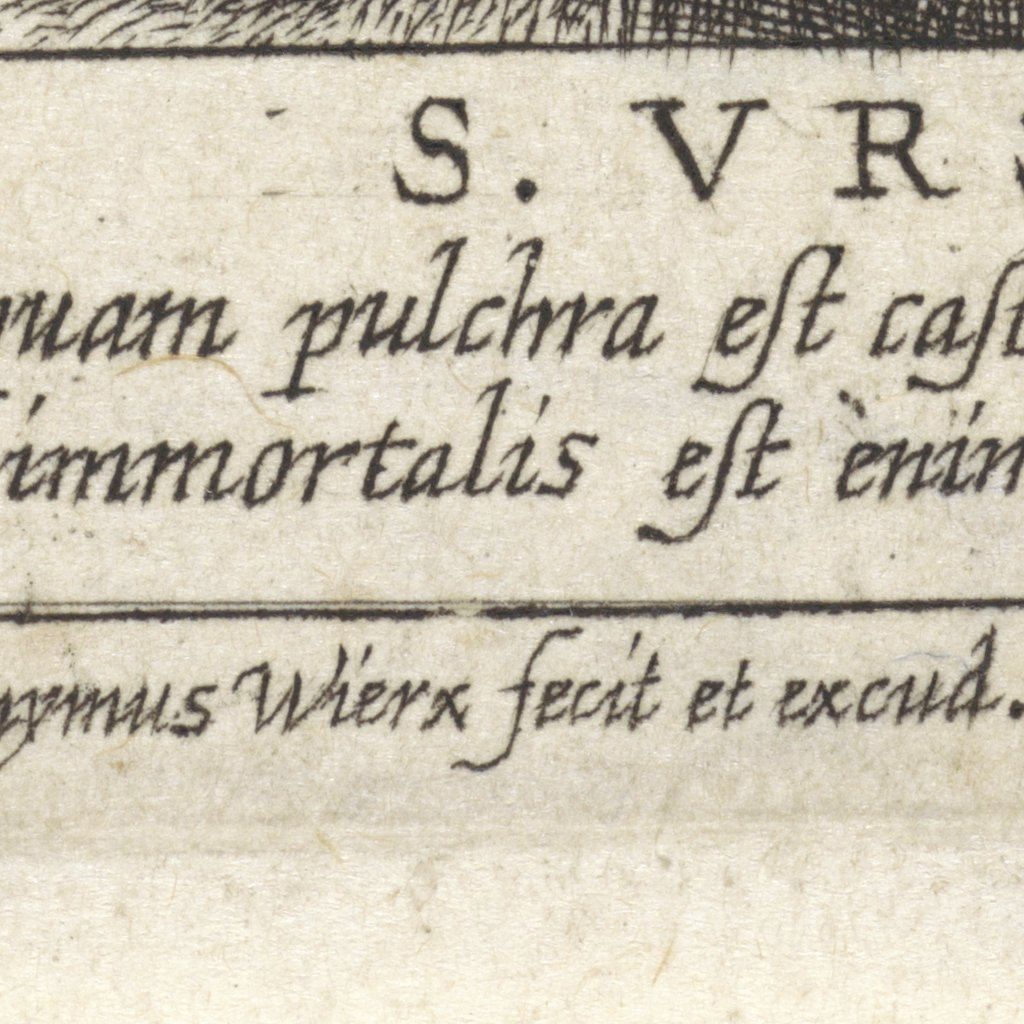 S. VRS
quam pulchra eſt caſt
immortalis eſt enim
nymus Wierx fecit et excud.